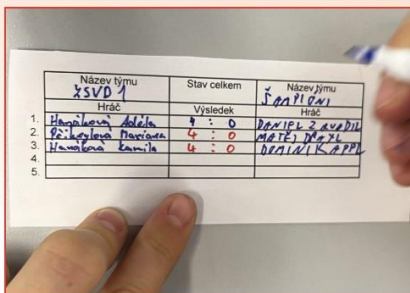 Název týmu Stav celkem Název týmu
ŽSVD 1 ŠAMPIÓNI
Hráč Výsledek Hráč
1. Hanáková Adéla 4 : 0 DANIEL ZAVADIL
2. Přikrylová Mariana 4 : 0 MATĚJ
3. Hanáková Kamila 4 : 0 DOMINIK APPL
4.
5.